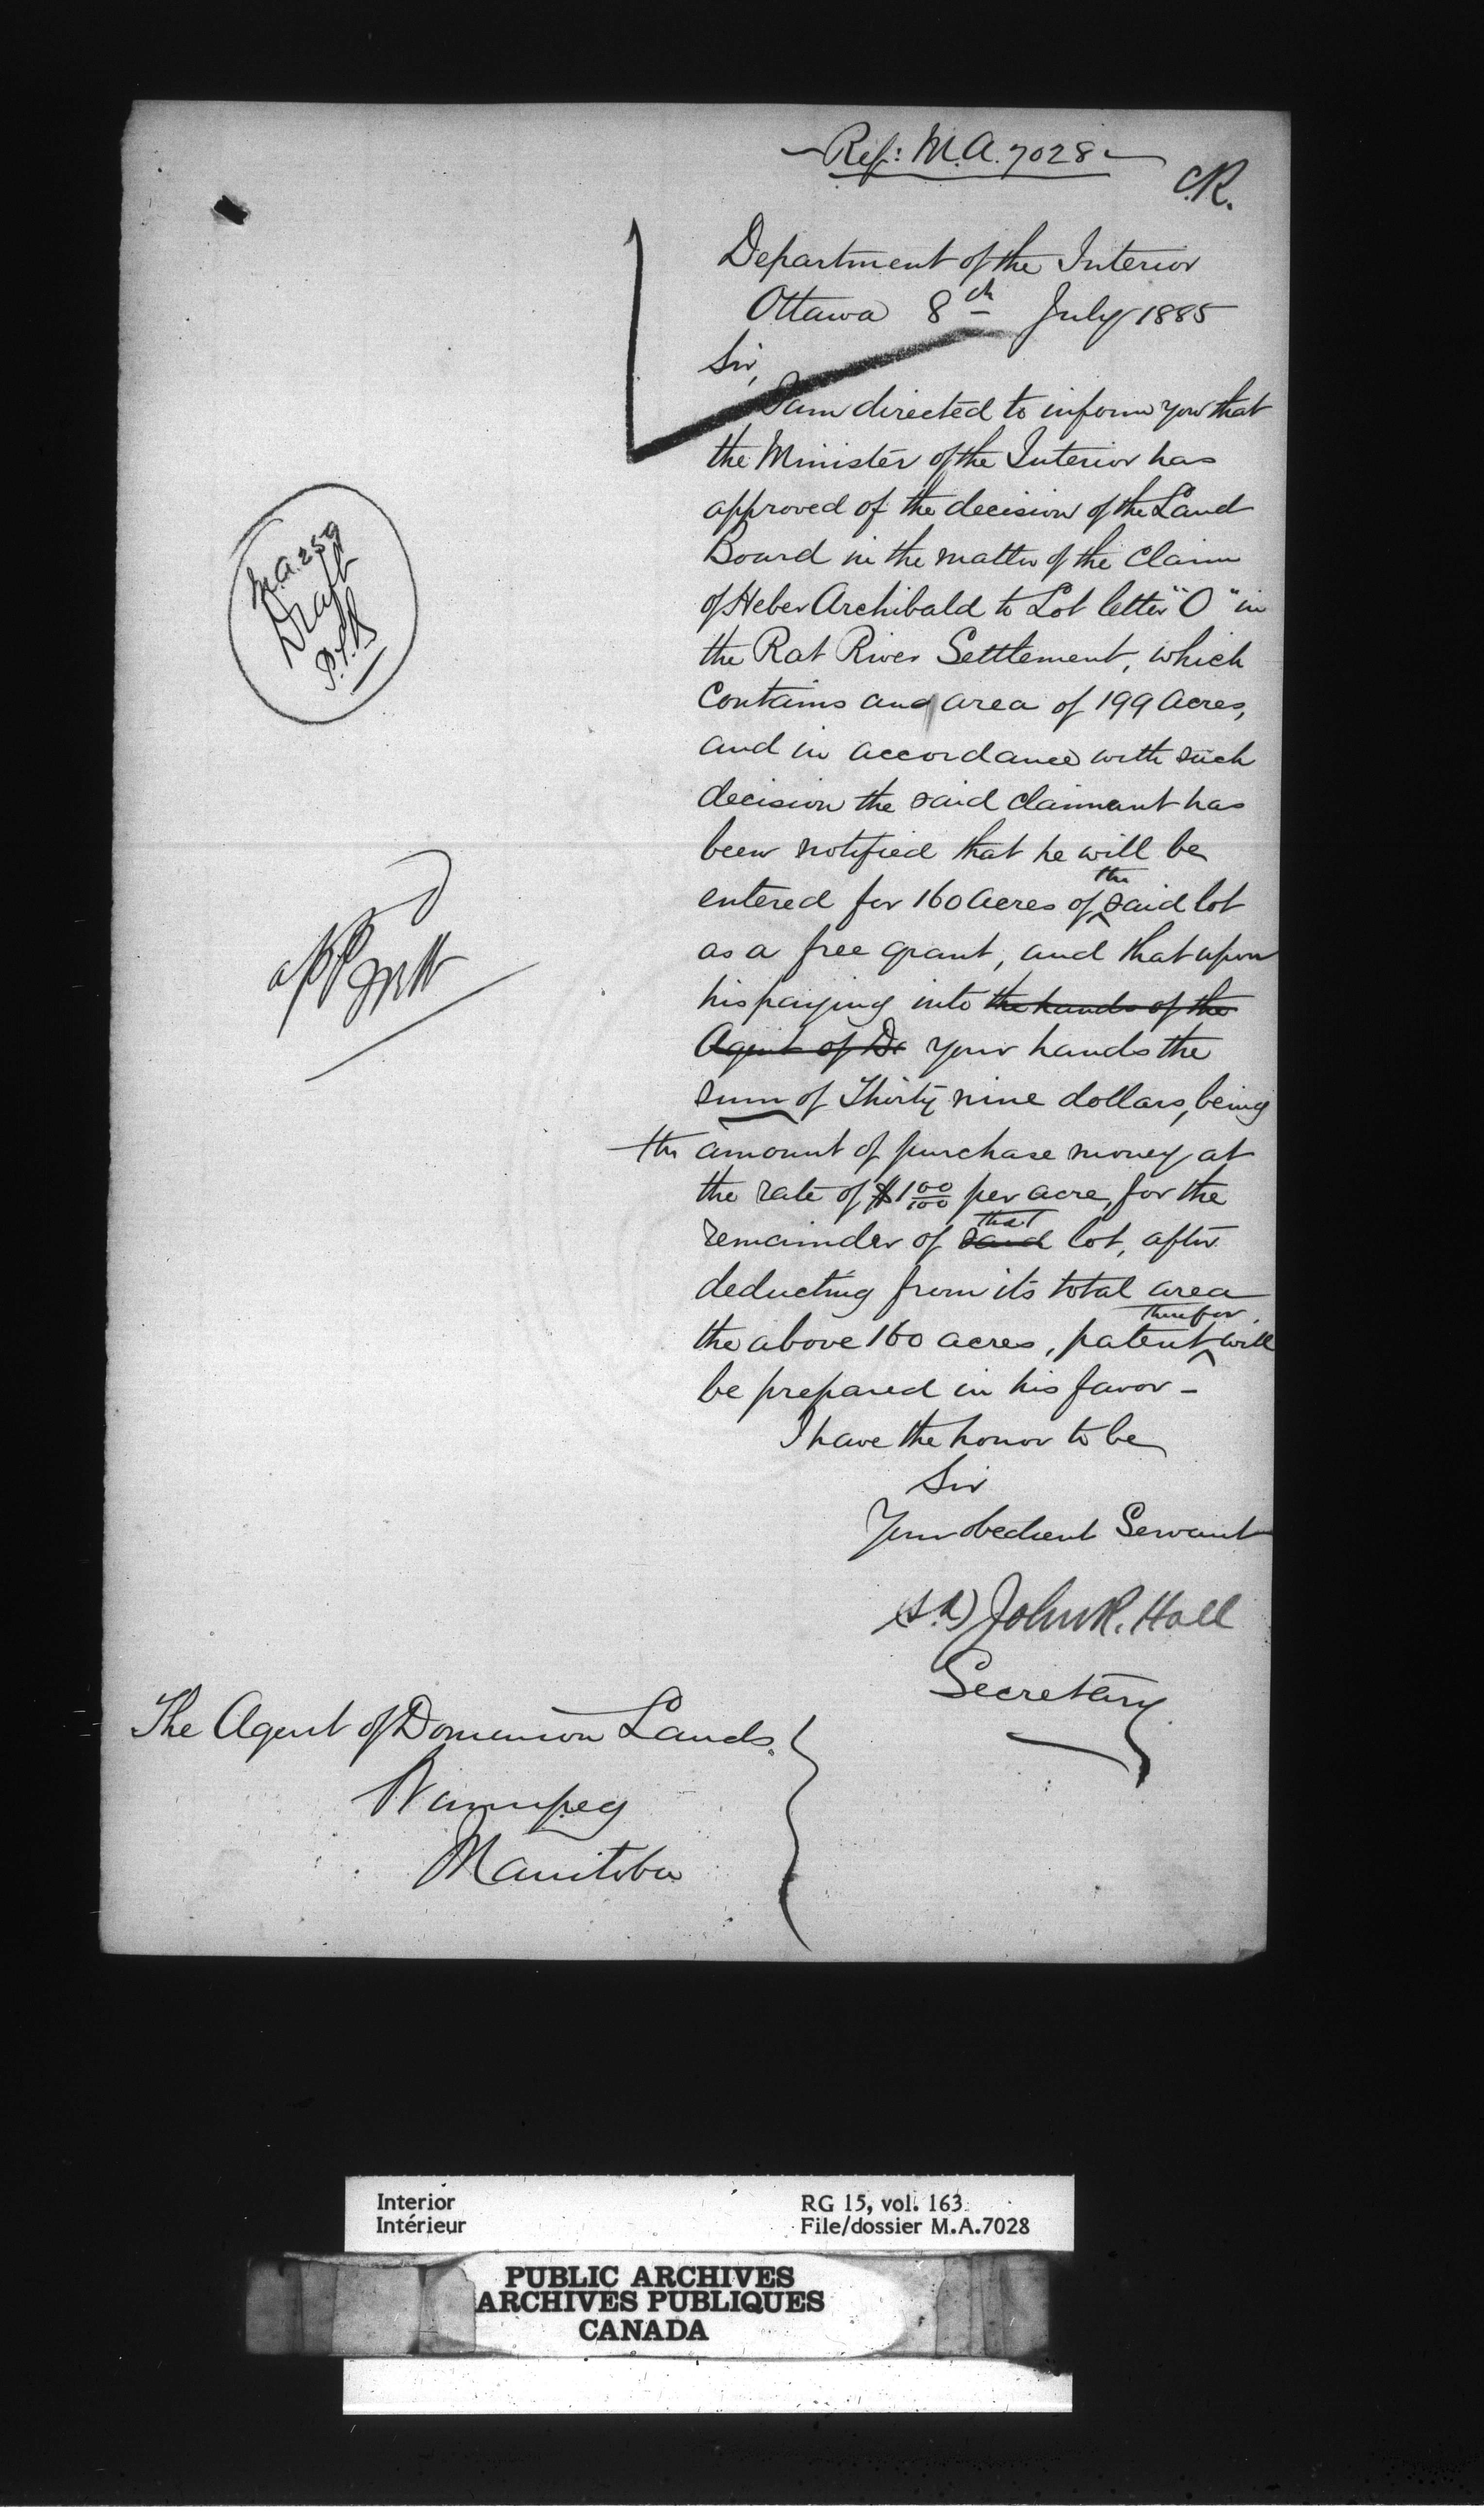 Ref: M.A. 7028
C.R.
Department of the Interior
Ottawa 8th July 1885
Sir,
I am directed to inform you that
the Minister of the Interior has
approved of the decision of the Land
Board in the matter of the claim
of Heber Archibald to Lot letter "O" in
the Rat River Settlement, which
Contains an area of 199 acres,
and in accordance with such
decision the said claimant has
been notified that he will be
entered for 160 acres of the said lot
as a free grant, and that upon
his paying into the hands of the
Agent of Do your hands the
sum of Thirty nine dollars, being
the amount of purchase money at
the rate of $1 00/100 per acre, for the
remainder of said that lot, after
deducting from its total area
the above 160 acres, patent therefor will
be prepared in his favor -
I have the honor to be
Sir
Your obedient Servant
(sd) John R. Hall
Secretary
The Agent of Dominion Lands.
Winnipeg
Manitoba
M.A. 259
Draft
Interior
Intérieur
RG 15, vol. 163
File/dossier M.A.7028
PUBLIC ARCHIVES
ARCHIVES PUBLIQUES
CANADA